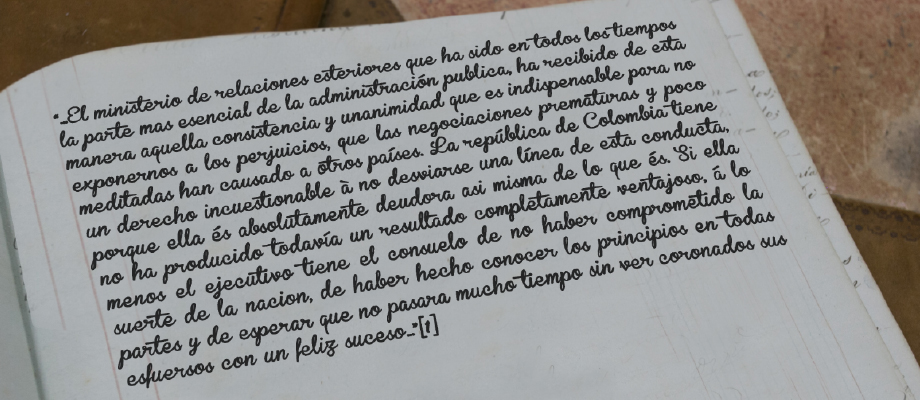 "_El ministerio de relaciones esteriores que ha sido en todos los tiempos
la parte mas esencial de la administración publica, ha recibido de esta
manera aquella consistencia y unanimidad que es indispensable para no
exponernos a los perjuicios, que las negociaciones prematuras y poco
meditadas han causado a otros países. La república de Colombia tiene
un derecho incuestionable à no desviarse una línea de esta conducta,
porque ella és absolutamente deudora asi misma de lo que és. Si ella
no ha producido todavía un resultado completamente ventajoso, á lo
menos el ejecutivo tiene el consuelo de no haber comprometido la
suerte de la nacion, de haber hecho conocer los principios en todas
partes y de esperar que no pasara mucho tiempo sin ver coronados sus
esfuersos con un feliz suceso_"[1]